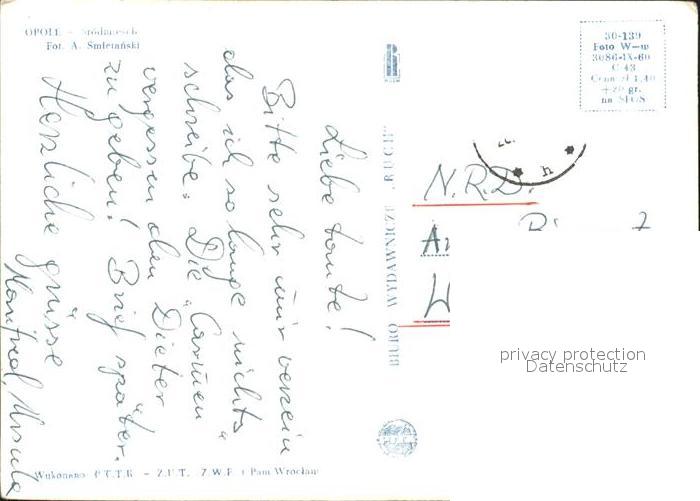 OPOLE – Śródmieście
Fot. A. Śmietański
Liebe tante!
Bitte sehr mir verzein
das ich so lange nichts
schreibe. Die "Carmen"
vergessen den Dieter
zu geben! Brief später.
Herzliche grüsse
Manfred, Ursula
Wykonano P.T.T.K – Z.U.T. Z.W.F. i Pam Wrocław
BIURO WYDAWNICZE "RUCH"
30-139
Foto W-w
3086-IX-60
C-43
Cena zł 1,40
+20 gr.
na SFOS
N.R.D.
privacy protection
Datenschutz